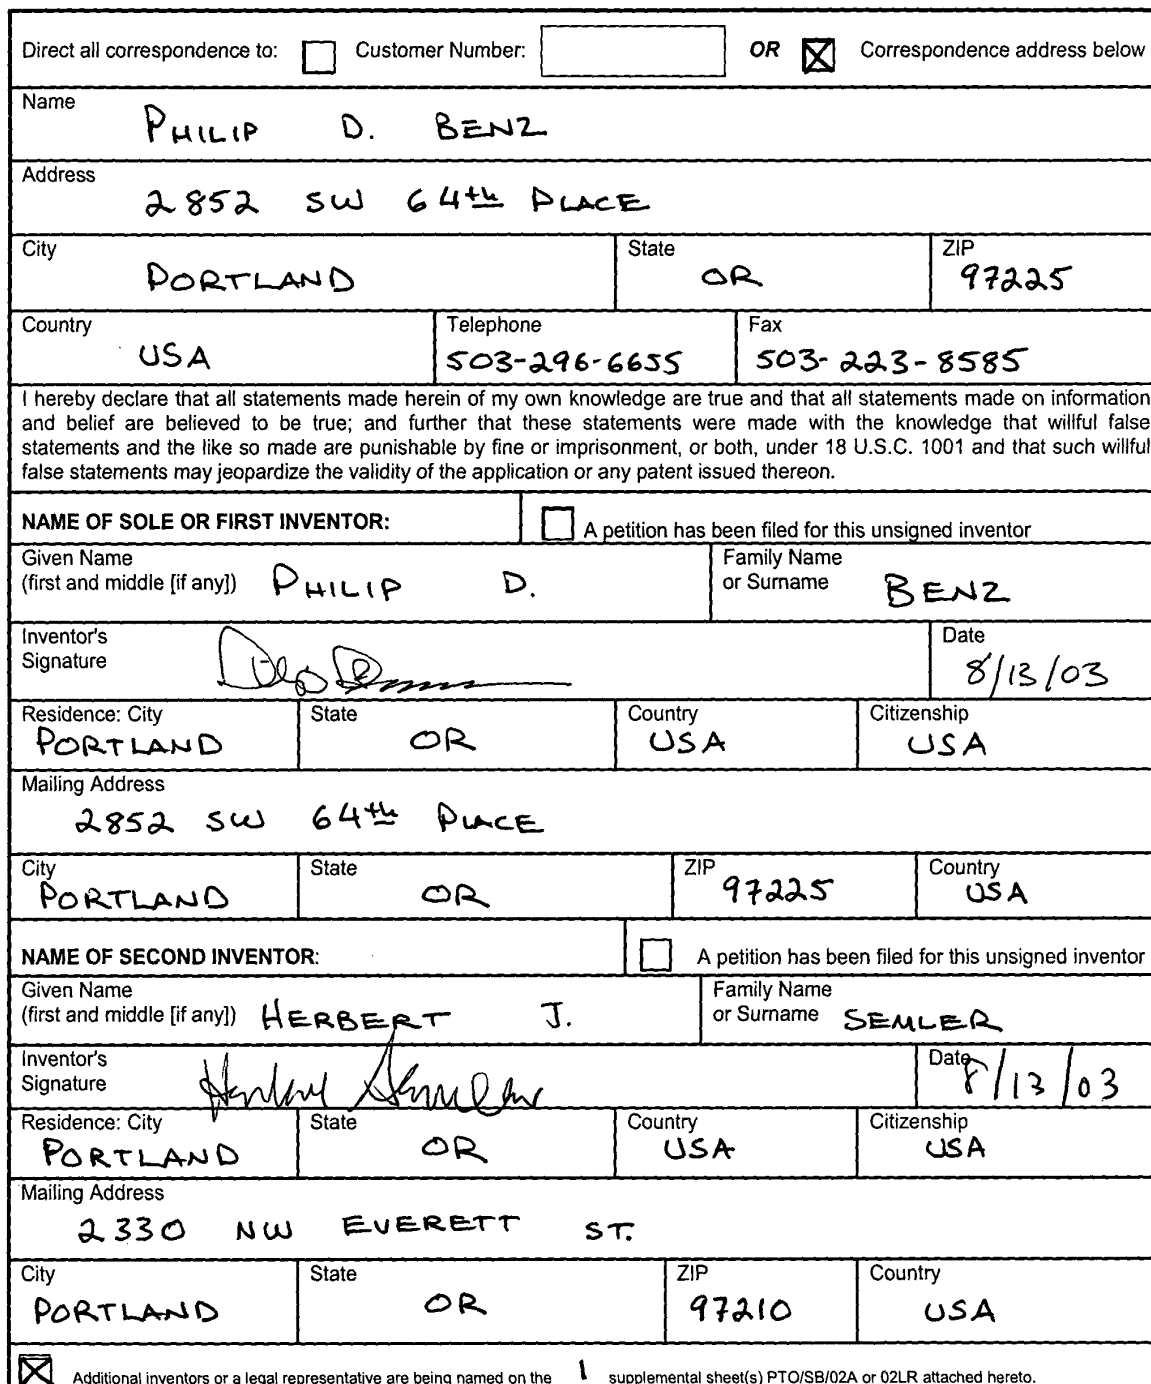 Direct all correspondence to: Customer Number: OR Correspondence address below
Name
PHILIP D. BENZ
Address
2852 SW 64th PLACE
City State ZIP
PORTLAND OR 97225
Country Telephone Fax
USA 503-296-6655 503-223-8585
I hereby declare that all statements made herein of my own knowledge are true and that all statements made on information
and belief are believed to be true; and further that these statements were made with the knowledge that willful false
statements and the like so made are punishable by fine or imprisonment, or both, under 18 U.S.C. 1001 and that such willful
false statements may jeopardize the validity of the application or any patent issued thereon.
NAME OF SOLE OR FIRST INVENTOR: A petition has been filed for this unsigned inventor
Given Name Family Name
(first and middle [if any]) PHILIP D. or Surname BENZ
Inventor's Date
Signature 8/13/03
Residence: City State Country Citizenship
PORTLAND OR USA USA
Mailing Address
2852 SW 64th PLACE
City State ZIP Country
PORTLAND OR 97225 USA
NAME OF SECOND INVENTOR: A petition has been filed for this unsigned inventor
Given Name Family Name
(first and middle [if any]) HERBERT J. or Surname SEMLER
Inventor's Date
Signature Herbert Semler 8/13/03
Residence: City State Country Citizenship
PORTLAND OR USA USA
Mailing Address
2330 NW EVERETT ST.
City State ZIP Country
PORTLAND OR 97210 USA
Additional inventors or a legal representative are being named on the 1 supplemental sheet(s) PTO/SB/02A or 02LR attached hereto.